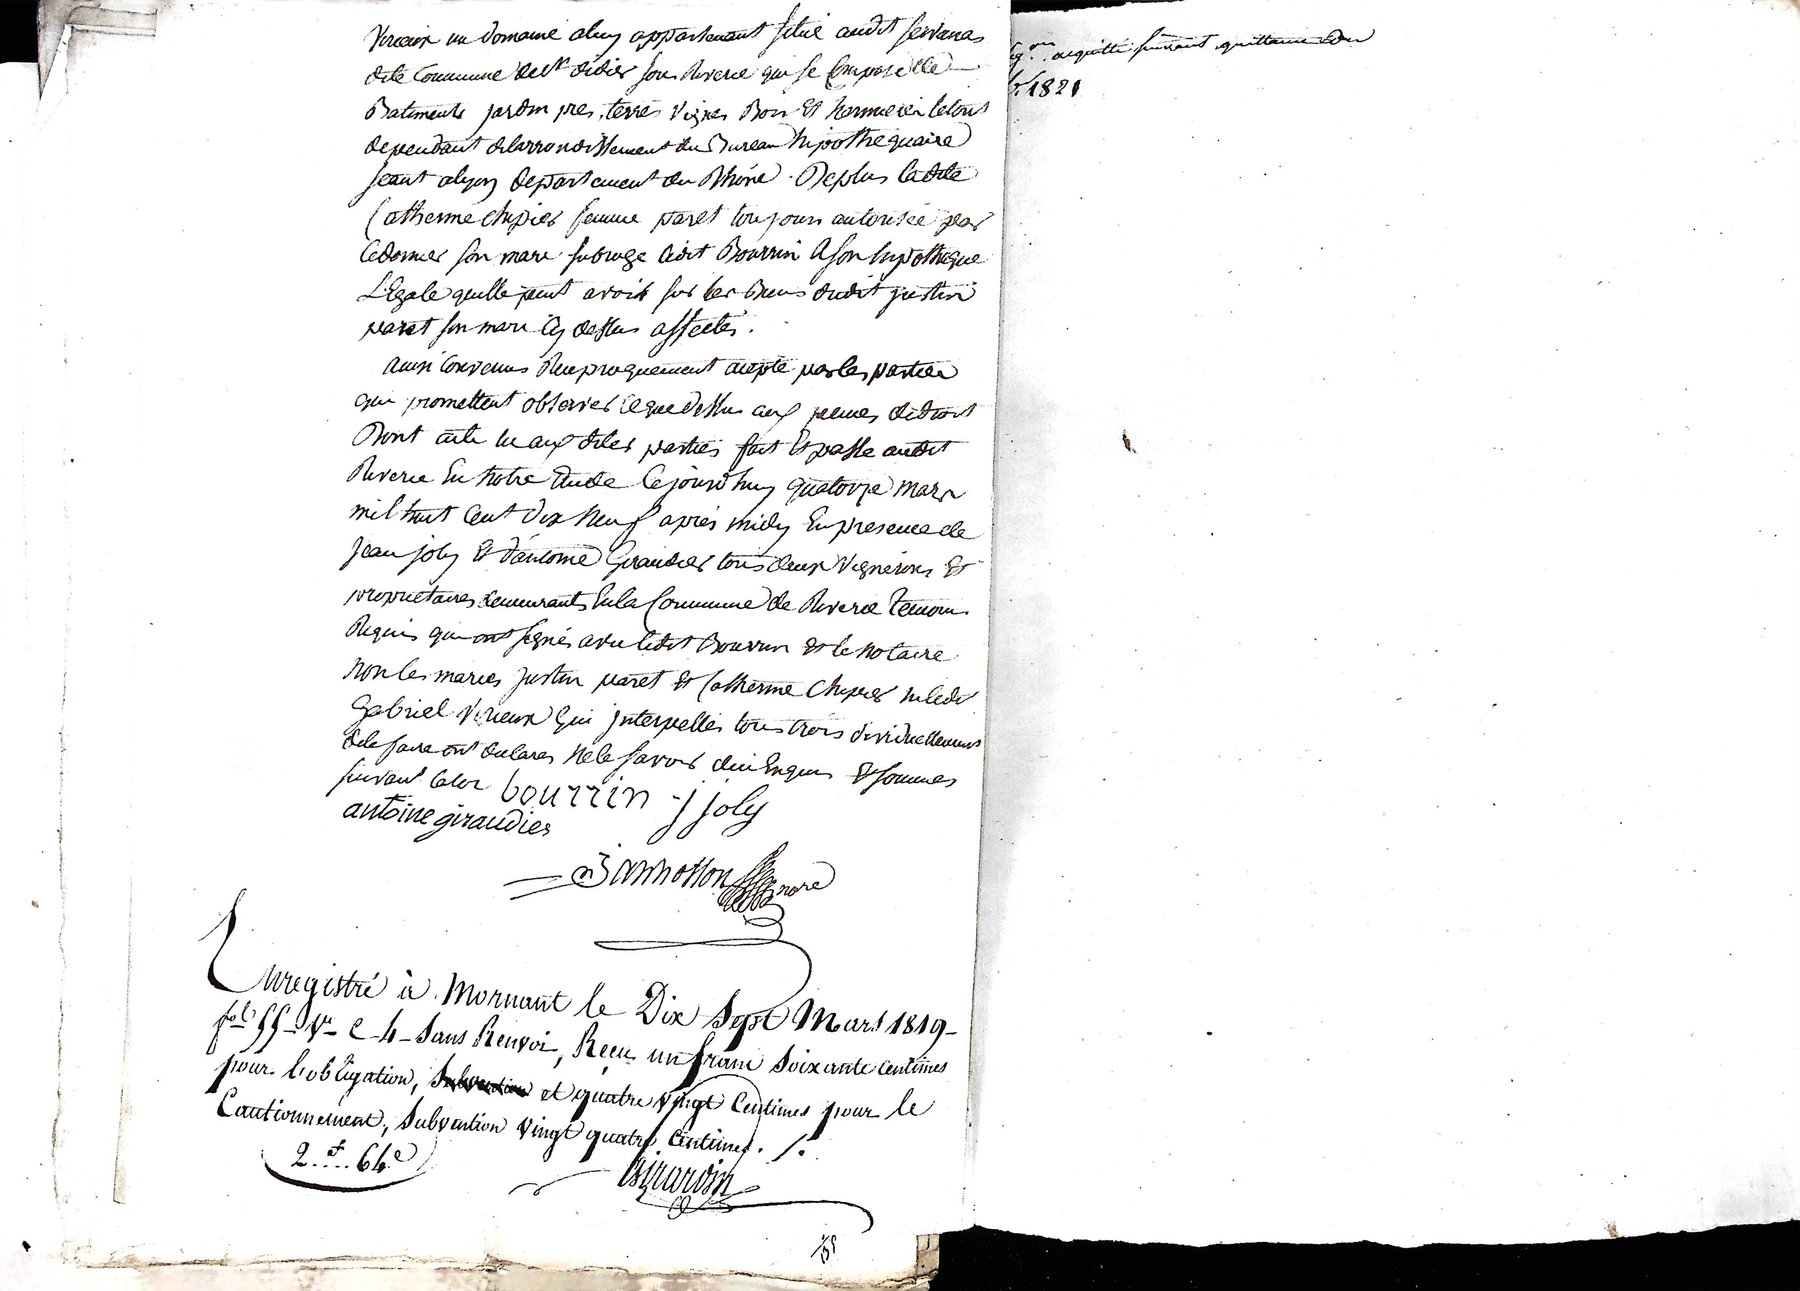 Verieux un domaine aluy appartenant situé audit
dite Commune de St didier sous Riverie qui se Compose de
Batiments jardin pres, terres Vignes Bois Et hermieres letout
dependant delarrondissement du Bureau hipothequaire
seant alyon departement du Rhône. Deplus ladite
Catherine chipier femme paret toujours autorisée par
cedernier son mari subroge ledit Bourrin a son hipotheque
Legale quelle peut avoir sur les Biens dudit justin
paret son mari Cy dessus affectés.
ainsi convenus Reciproquement accepté par les parties
qui promettent observer ceque dessus aux peines de droit
Dont acte lu aux dites parties fait Et passé audit
Riverie En notre Etude Cejourdhuy quatorze mars
mil huit Cent dix Neuf après midy En presence de
jean joly Et d'antoine Giraudier tous deux Vignerons Et
proprietaires demeurants En la Commune de Riverie temoins
Requis qui ont signés avec ledit Bourrin Et le notaire
non les maries justin paret Et Catherine Chipier ni ledit
Gabriel Verieux Qui jnterpellés tous trois
de le faire ont declarés Ne le savoir deu Enquis Et sommes
suivant la loi bourrin j joly
antoine giraudier
nore
Enregistré à Mornant le Dix Sept Mars 1819
fol. 55 Vo C 4 Sans Renvoi, Reçu un franc Soixante Centimes
pour l'obligation, et quatre vingt Centimes pour le
Cautionnement, Subvention vingt quatre Centimes ./.
2.f....64c
Girardin
acquitté suivant quittance du
1821